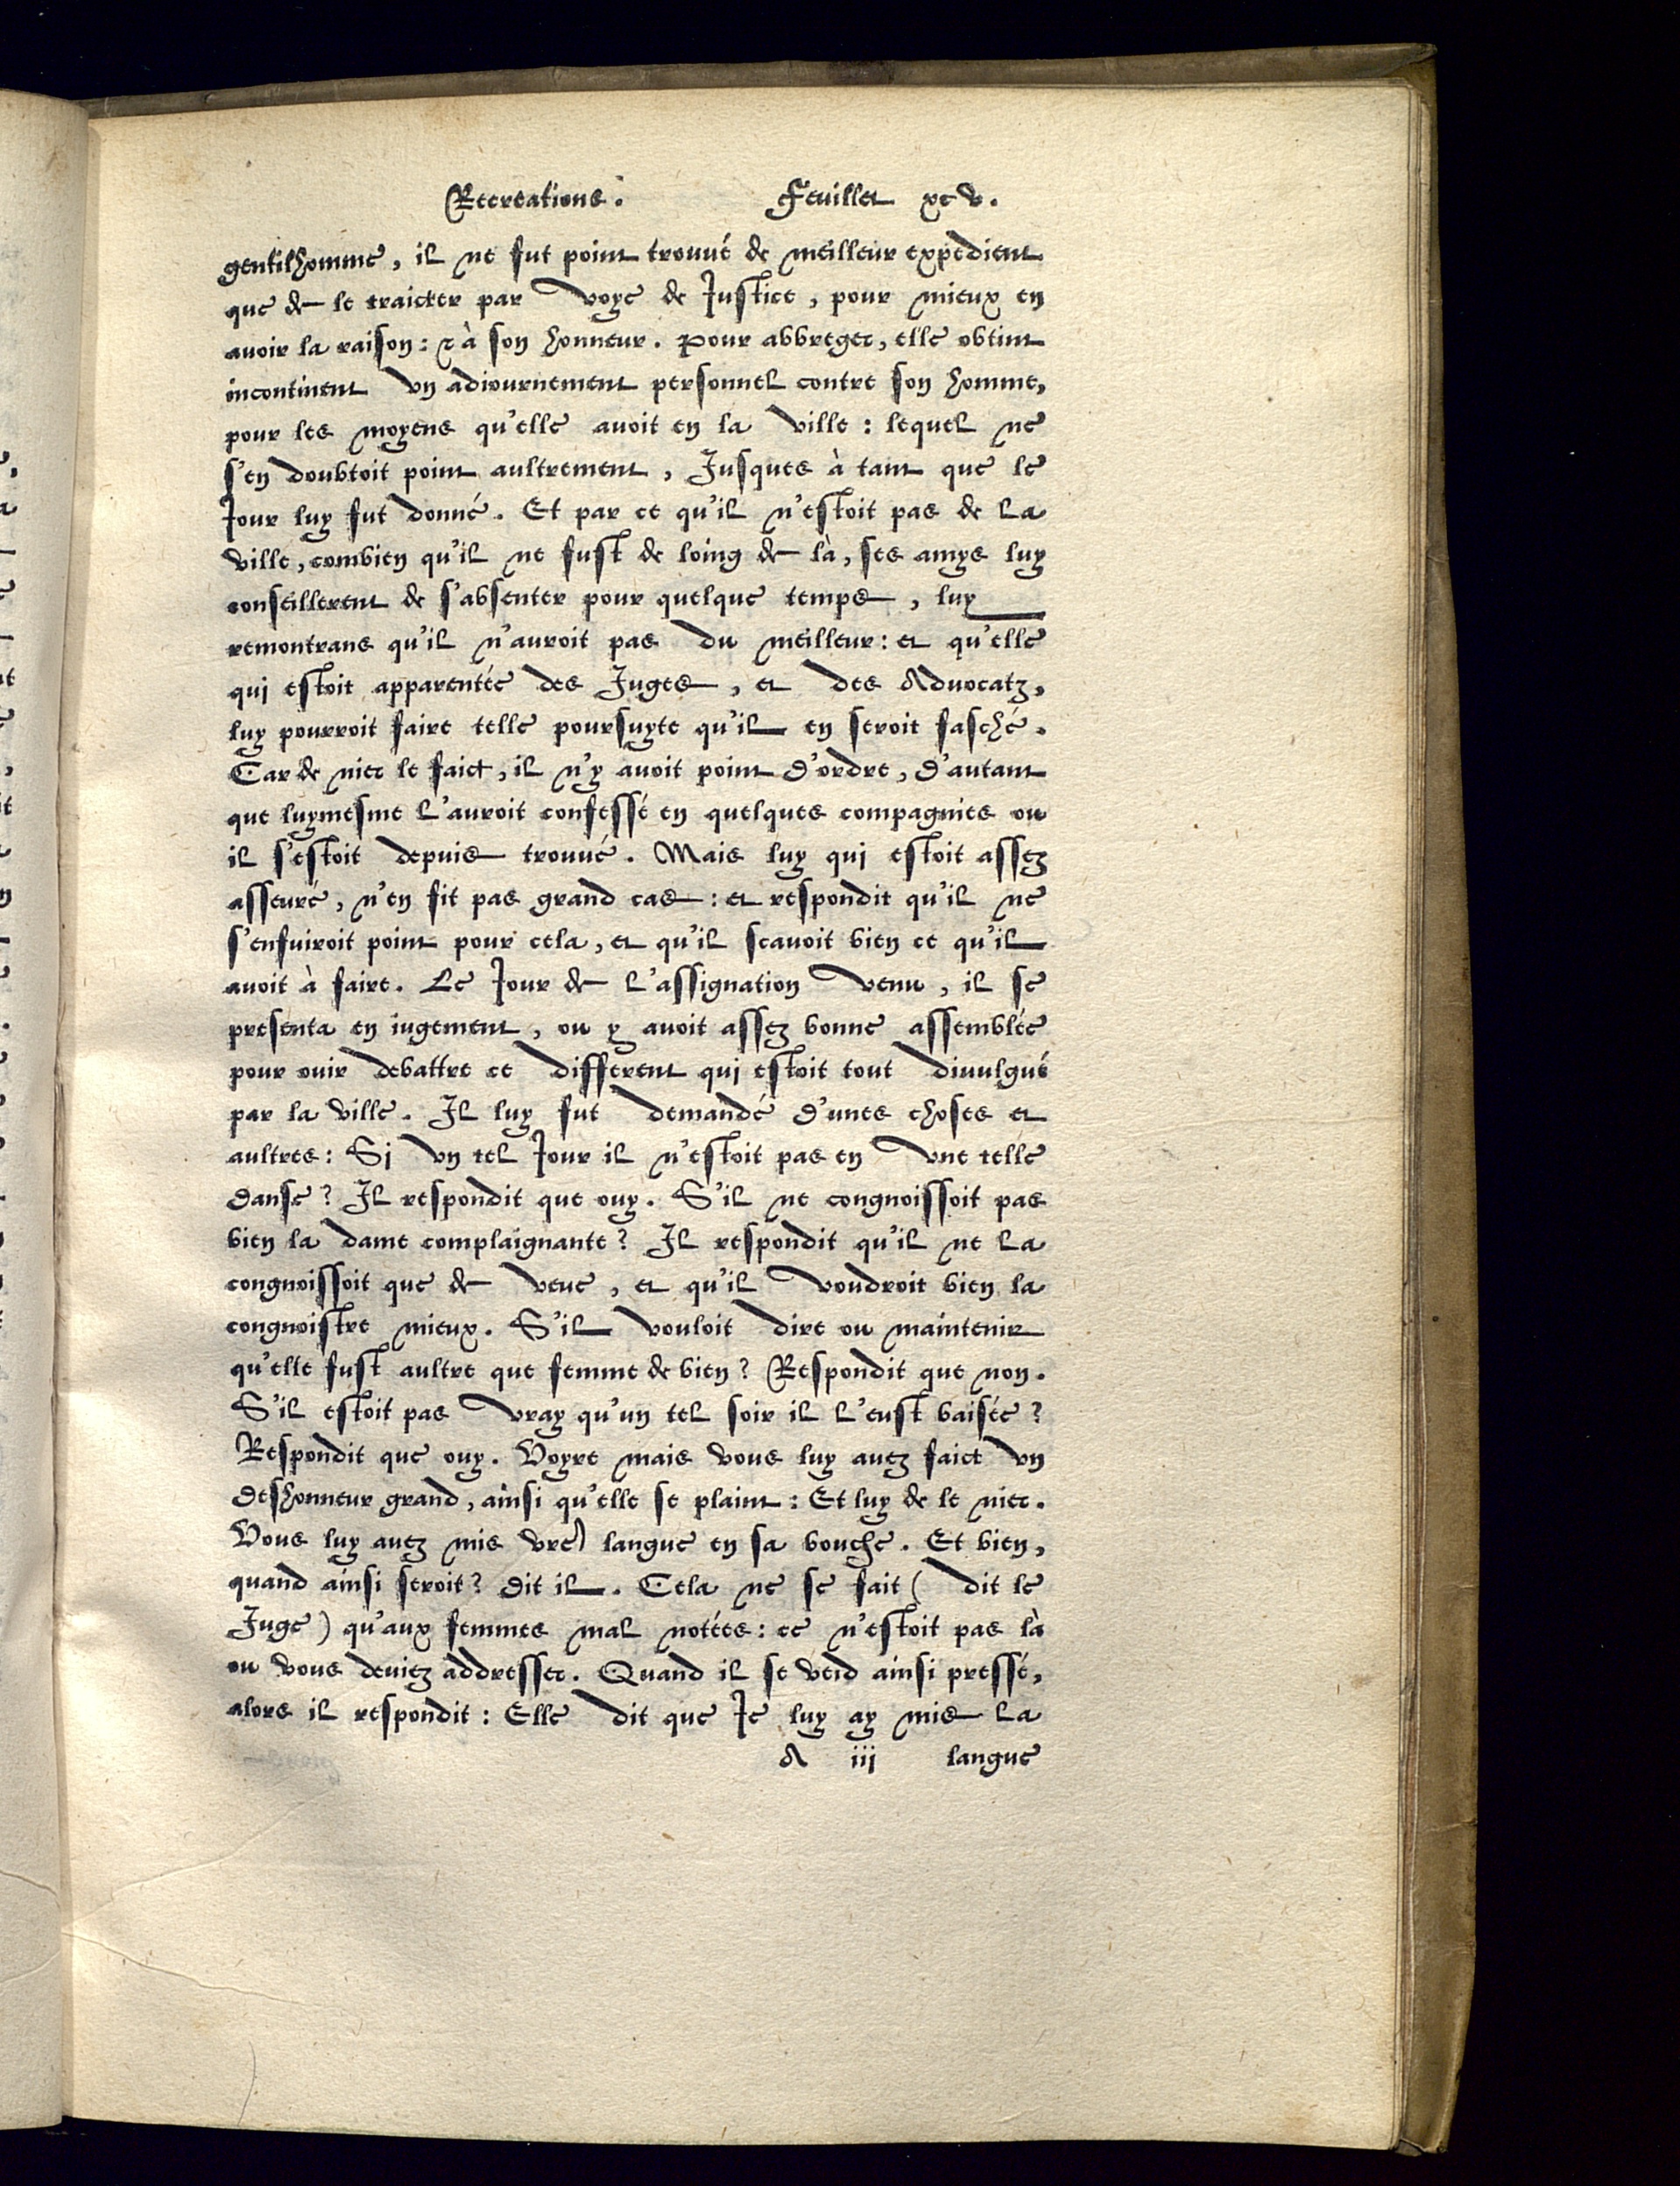 Recreations. Feuillet xcv.
gentilhomme, il ne fut point trouué de meilleur expedient
que de le traicter par voye de Justice, pour mieux en
auoir la raison: & à son honneur. Pour abbreger, elle obtint
incontinent vn adiournement personnel contre son homme,
pour les moyens qu'elle auoit en la ville: lequel ne
s'en doubtoit point aultrement, Jusques à tant que le
Jour luy fut donné. Et par ce qu'il n'estoit pas de la
ville, combien qu'il ne fust de loing de là, ses amys luy
conseillerent de s'absenter pour quelque temps, luy
remontrans qu'il n'auroit pas du meilleur: et qu'elle
qui estoit apparentée des Juges, et des Aduocatz,
luy pourroit faire telle poursuyte qu'il en seroit fasché.
Car de nier le faict, il n'y auoit point d'ordre, d'autant
que luymesme l'auroit confessé en quelques compagnies ou
il s'estoit depuis trouué. Mais luy qui estoit assez
asseuré, n'en fit pas grand cas: et respondit qu'il ne
s'enfuiroit point pour cela, et qu'il scauoit bien ce qu'il
auoit à faire. Le Jour de l'assignation venu, il se
presenta en iugement, ou y auoit assez bonne assemblée
pour ouir debattre ce different qui estoit tout diuulgué
par la ville. Il luy fut demandé d'unes choses et
aultres: Si vn tel Jour il n'estoit pas en vne telle
danse? Il respondit que ouy. S'il ne congnoissoit pas
bien la dame complaignante? Il respondit qu'il ne la
congnoissoit que de veue, et qu'il voudroit bien la
congnoistre mieux. S'il vouloit dire ou maintenir
qu'elle fust aultre que femme de bien? Respondit que non.
S'il estoit pas vray qu'un tel soir il l'eust baisée?
Respondit que ouy. Voyre mais vous luy auez faict vn
deshonneur grand, ainsi qu'elle se plaint: Et luy de le nier.
Vous luy auez mis vre langue en sa bouche. Et bien,
quand ainsi seroit? dit il. Cela ne se fait (dit le
Juge) qu'aux femmes mal notées: ce n'estoit pas là
ou vous deuiez addresser. Quand il se veid ainsi pressé,
alors il respondit: Elle dit que Je luy ay mis la
A iij langue